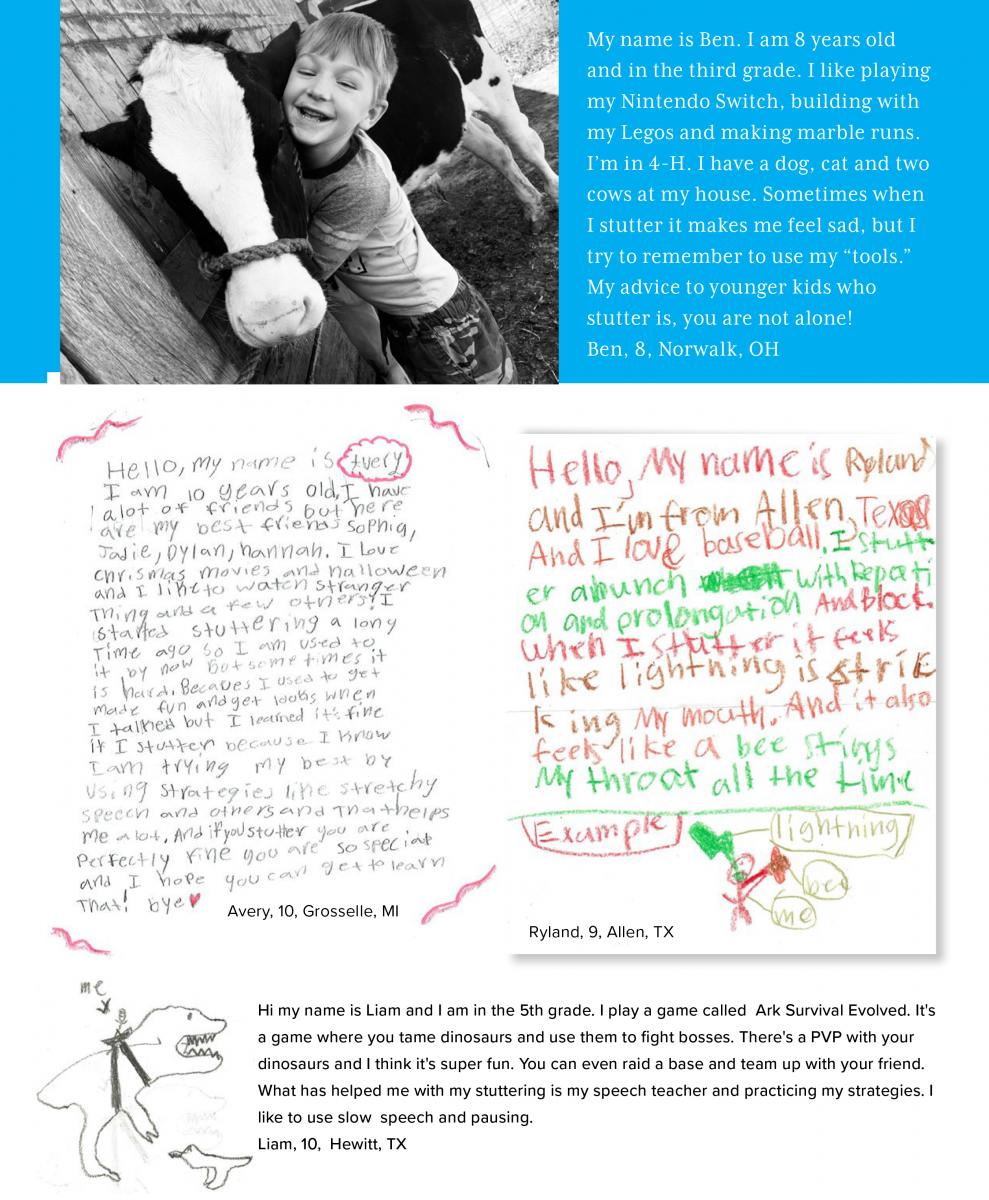 My name is Ben. I am 8 years old
and in the third grade. I like playing
my Nintendo Switch, building with
my Legos and making marble runs.
I'm in 4-H. I have a dog, cat and two
cows at my house. Sometimes when
I stutter it makes me feel sad, but I
try to remember to use my “tools.”
My advice to younger kids who
stutter is, you are not alone!
Ben, 8, Norwalk, OH
Hello, My name is Avery
I am 10 years old, I have
alot of friends but here
are my best friends Sophia,
Jadie, Dylan, hannah. I love
chrismas movies and halloween
and I like to watch stranger
Thing and a few others! I
started stuttering a long
Time ago so I am used to
it by now But some times it
is hard. Becaues I used to get
made fun and get looks when
I talked but I learned it's fine
if I stutter because I know
I am trying my best by
using strategies like stretchy
speech and others and That helps
me a lot, And if you stutter you are
Perfectly fine you are so special
and I hope you can get to learn
That! bye
Avery, 10, Grosselle, MI
Hello, My name is Ryland
and I'm from Allen, Texas
And I love baseball. I stutt
er a bunch with Repeati
on and prolongation And block.
when I stutter it feels
like lightning is strik
k ing My mouth. And it also
feels like a bee stings
My throat all the time
Example
lightning
bee
me
Ryland, 9, Allen, TX
me
Hi my name is Liam and I am in the 5th grade. I play a game called Ark Survival Evolved. It's
a game where you tame dinosaurs and use them to fight bosses. There's a PVP with your
dinosaurs and I think it's super fun. You can even raid a base and team up with your friend.
What has helped me with my stuttering is my speech teacher and practicing my strategies. I
like to use slow speech and pausing.
Liam, 10, Hewitt, TX